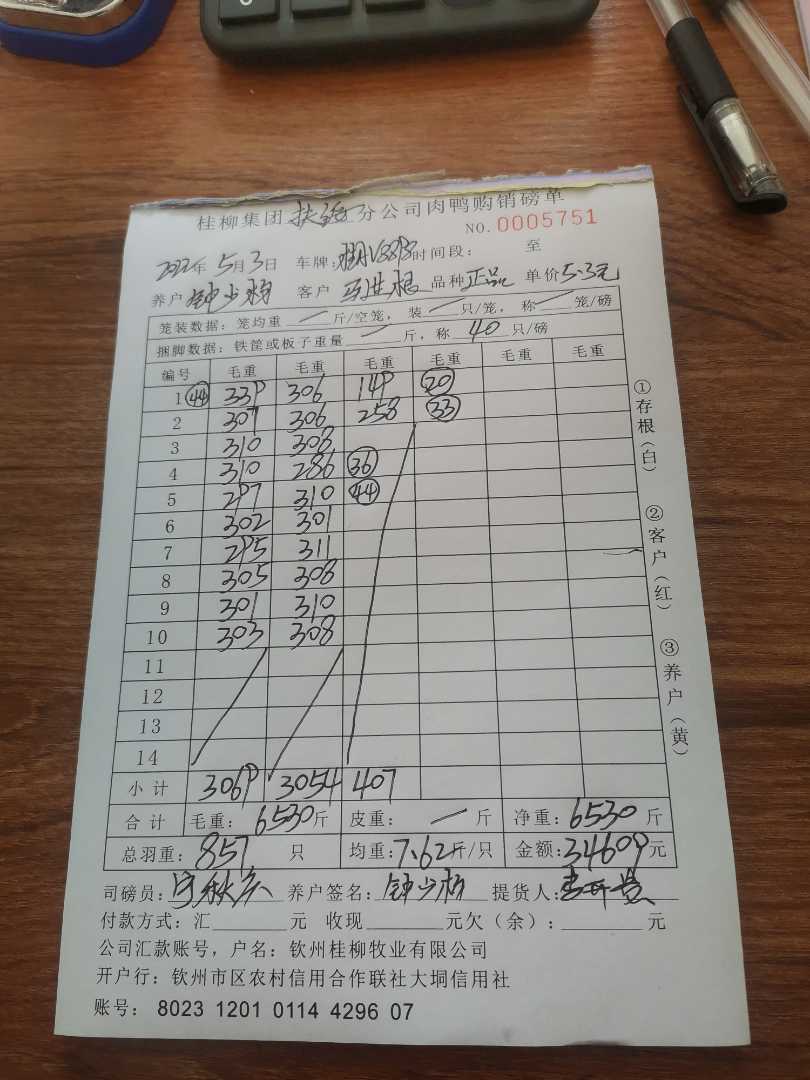 桂柳集团扶绥分公司肉鸭购销磅单
NO.0005751
2022年5月3日 车牌: 时间段: 至
养户 钟少 客户 品种 正品 单价 5.3元
笼装数据:笼均重 — 斤/空笼, 装 — 只/笼, 称 — 笼/磅
捆脚数据:铁筐或板子重量 — 斤, 称 40 只/磅
编号 毛重 毛重 毛重 毛重 毛重 毛重
1 44 339 306 149 20
2 307 306 258 33
3 310 308
4 310 286 36
5 297 310 44
6 302 301
7 295 311
8 305 308
9 301 310
10 303 308
11
12
13
14
小计 3069 3054 407
合计 毛重: 6530斤 皮重: — 斤 净重: 6530 斤
总羽重: 857 只 均重: 7.62斤/只 金额: 34609元
司磅员: 养户签名: 钟少 提货人:
付款方式: 汇 元 收现 元欠(余): 元
公司汇款账号, 户名: 钦州桂柳牧业有限公司
开户行: 钦州市区农村信用合作联社大垌信用社
账号: 8023 1201 0114 4296 07
①存根(白)
②客户(红)
③养户(黄)